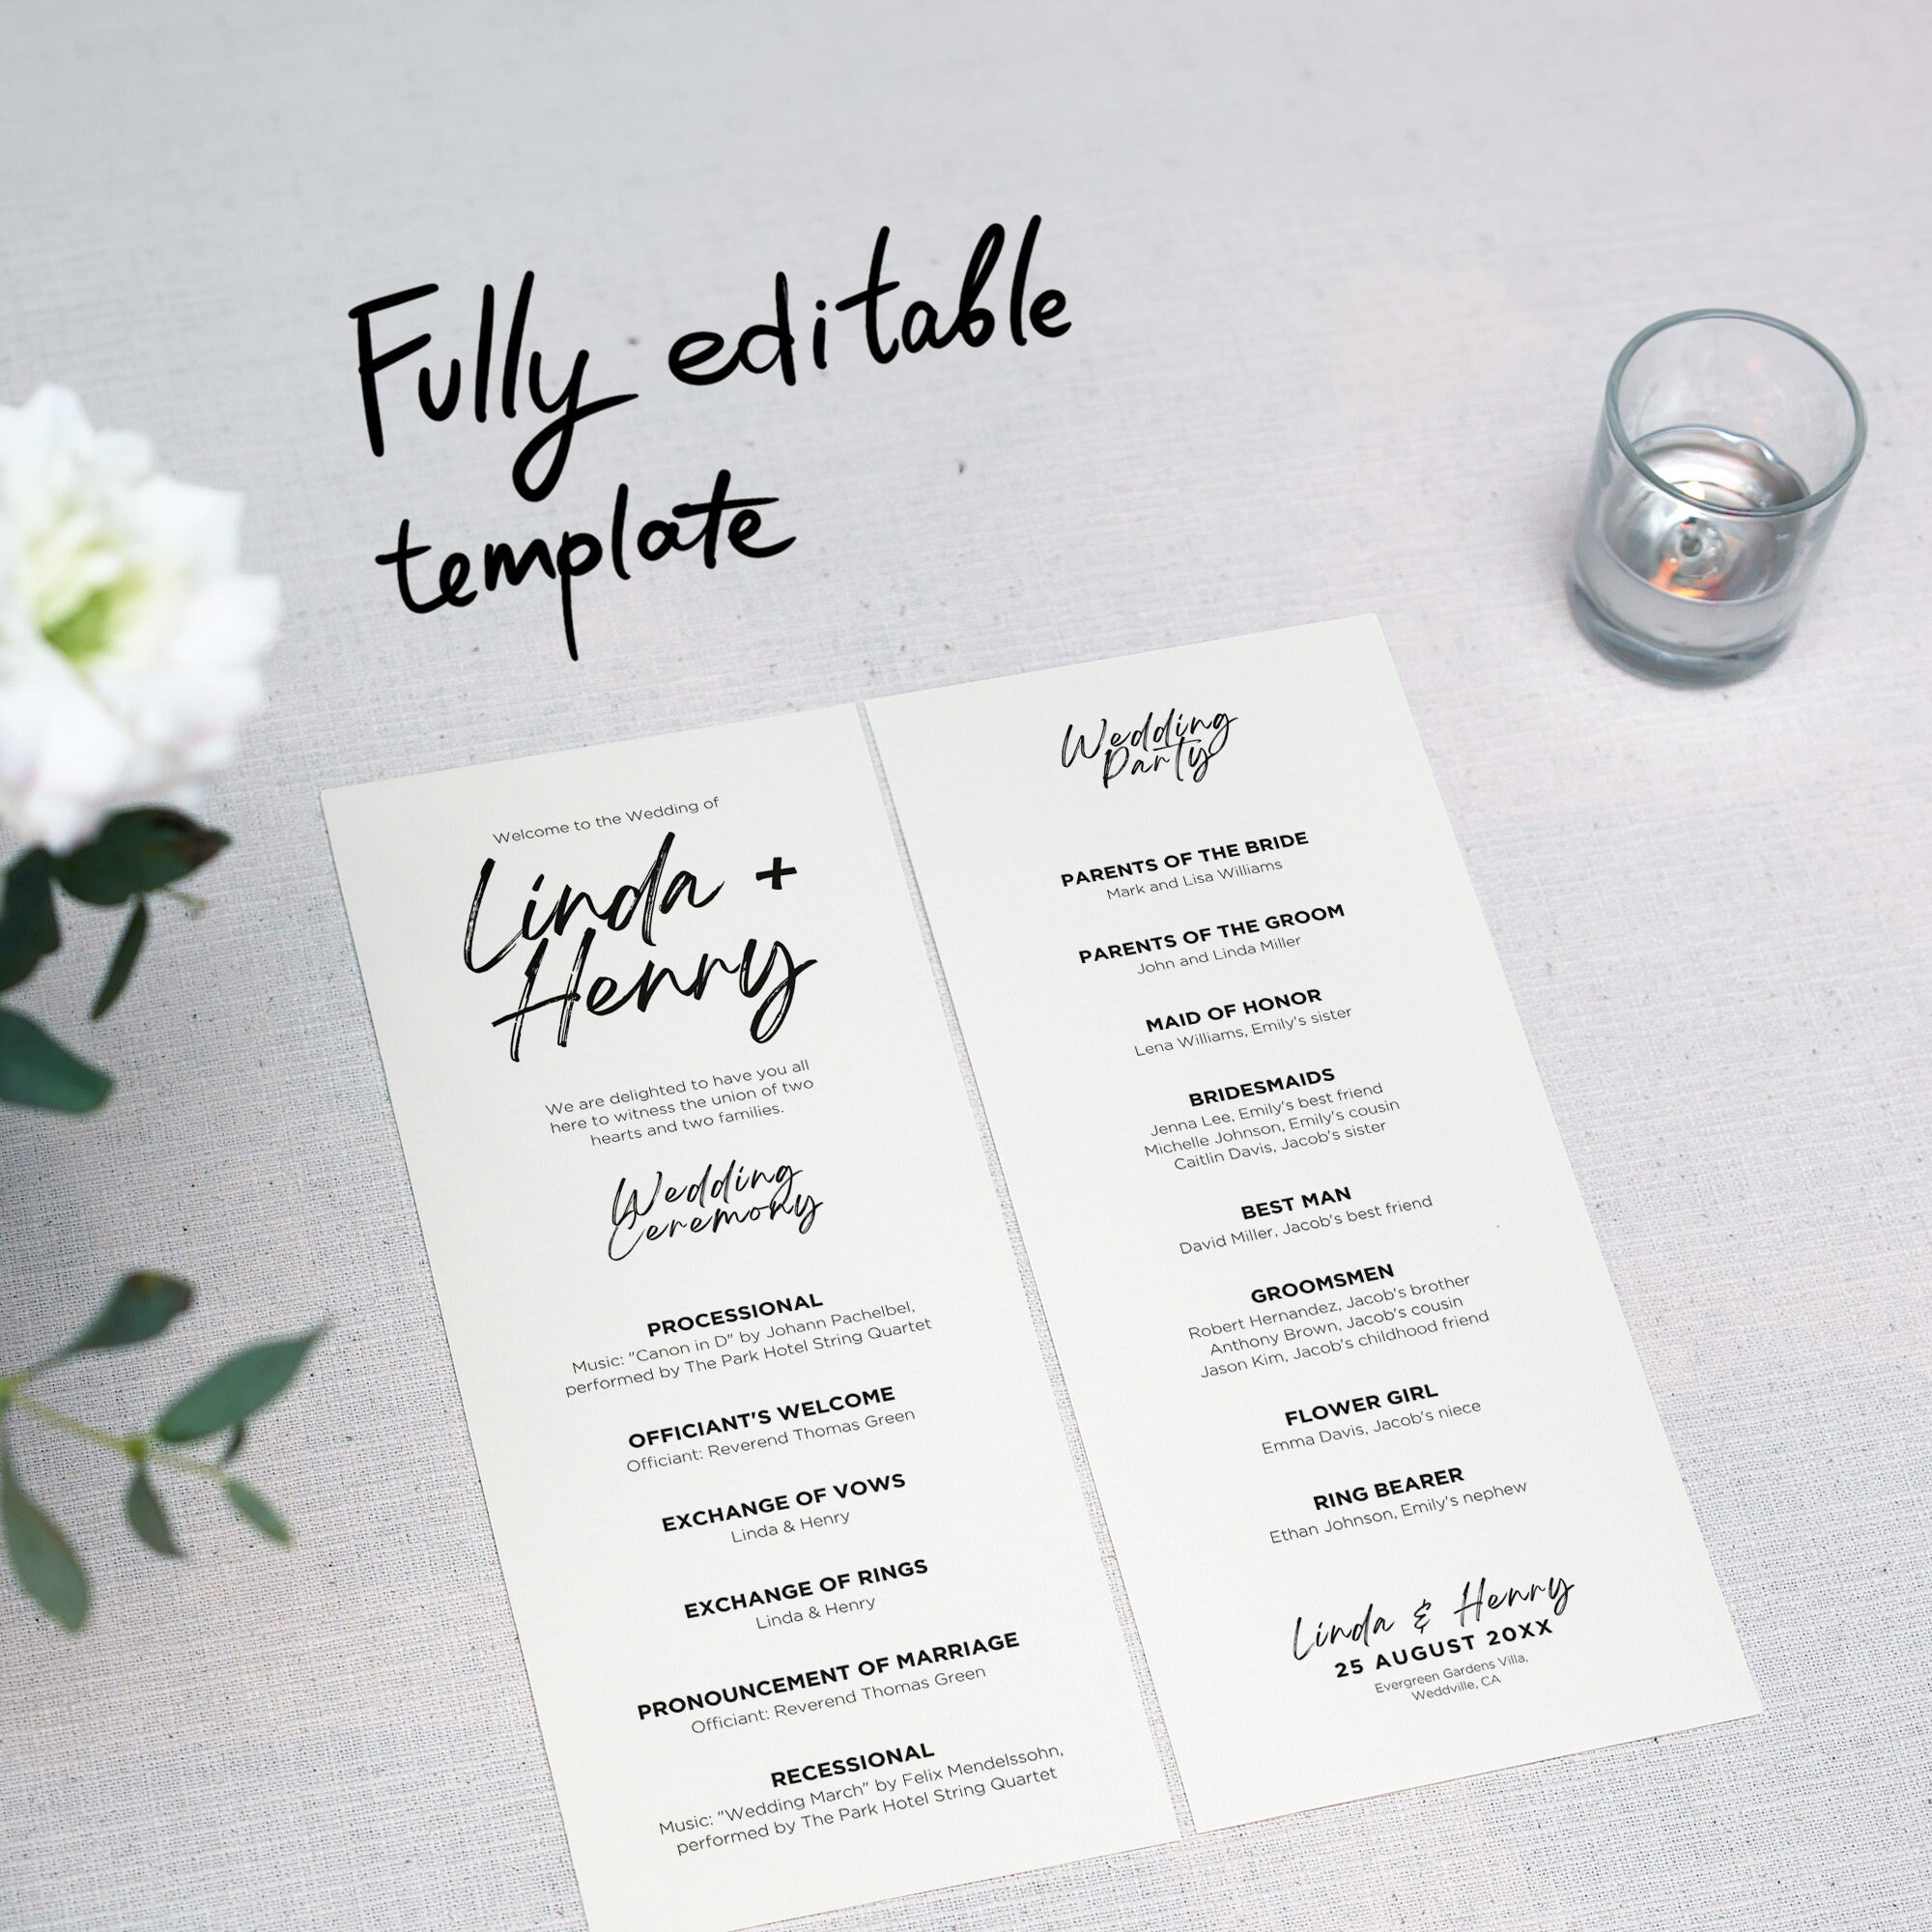 Fully editable
template
Welcome to the Wedding of
Linda +
Henry
We are delighted to have you all
here to witness the union of two
hearts and two families.
Wedding
Ceremony
PROCESSIONAL
Music: "Canon in D" by Johann Pachelbel,
performed by The Park Hotel String Quartet
OFFICIANT'S WELCOME
Officiant: Reverend Thomas Green
EXCHANGE OF VOWS
Linda & Henry
EXCHANGE OF RINGS
Linda & Henry
PRONOUNCEMENT OF MARRIAGE
Officiant: Reverend Thomas Green
RECESSIONAL
Music: "Wedding March" by Felix Mendelssohn,
performed by The Park Hotel String Quartet
Wedding
Party
PARENTS OF THE BRIDE
Mark and Lisa Williams
PARENTS OF THE GROOM
John and Linda Miller
MAID OF HONOR
Lena Williams, Emily's sister
BRIDESMAIDS
Jenna Lee, Emily's best friend
Michelle Johnson, Emily's cousin
Caitlin Davis, Jacob's sister
BEST MAN
David Miller, Jacob's best friend
GROOMSMEN
Robert Hernandez, Jacob's brother
Anthony Brown, Jacob's cousin
Jason Kim, Jacob's childhood friend
FLOWER GIRL
Emma Davis, Jacob's niece
RING BEARER
Ethan Johnson, Emily's nephew
Linda & Henry
25 AUGUST 20XX
Evergreen Gardens Villa,
Weddville, CA